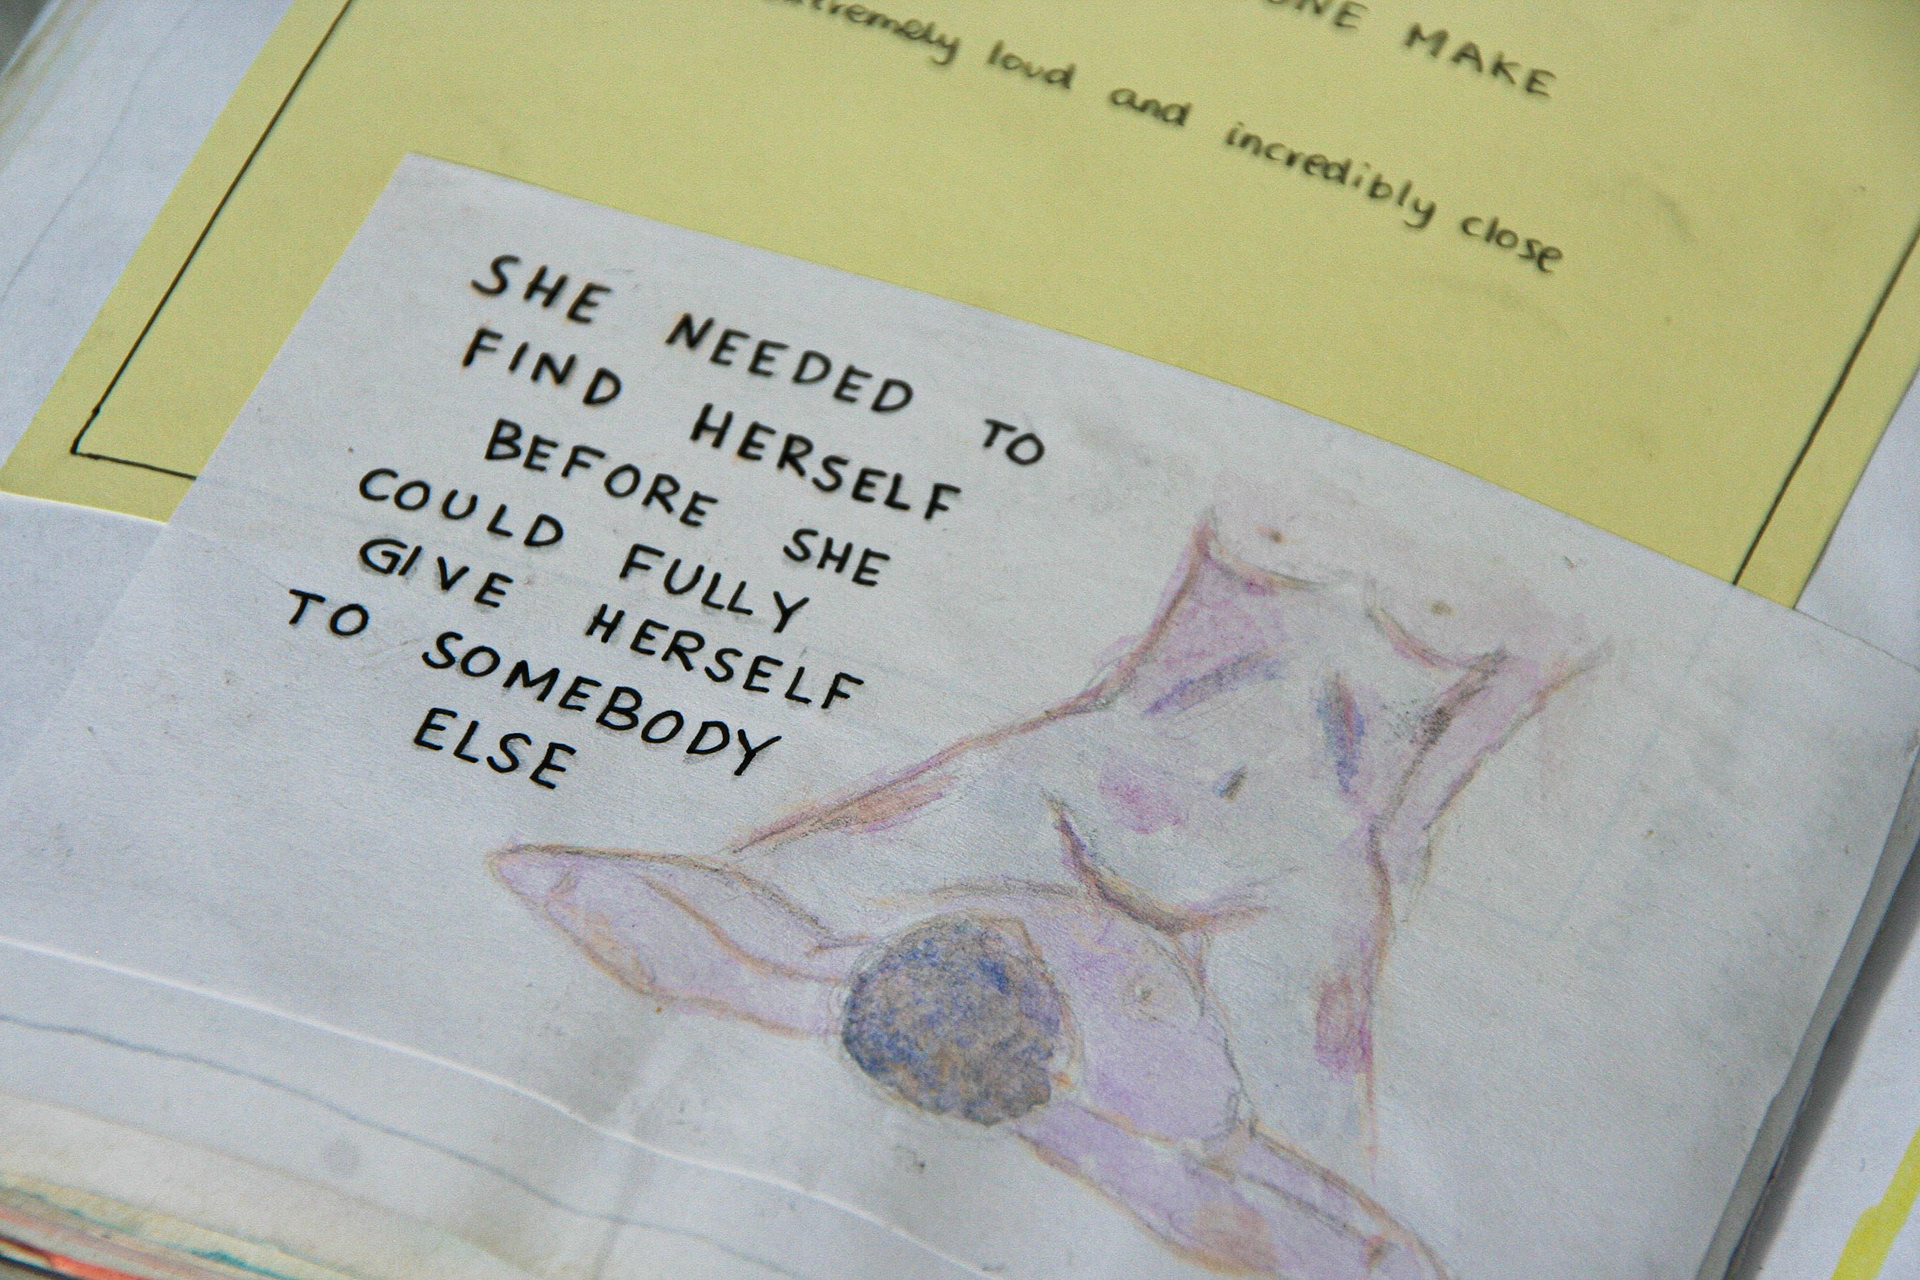 MAKE
extremely loud and incredibly close
SHE NEEDED TO
FIND HERSELF
BEFORE SHE
COULD FULLY
GIVE HERSELF
TO SOMEBODY
ELSE